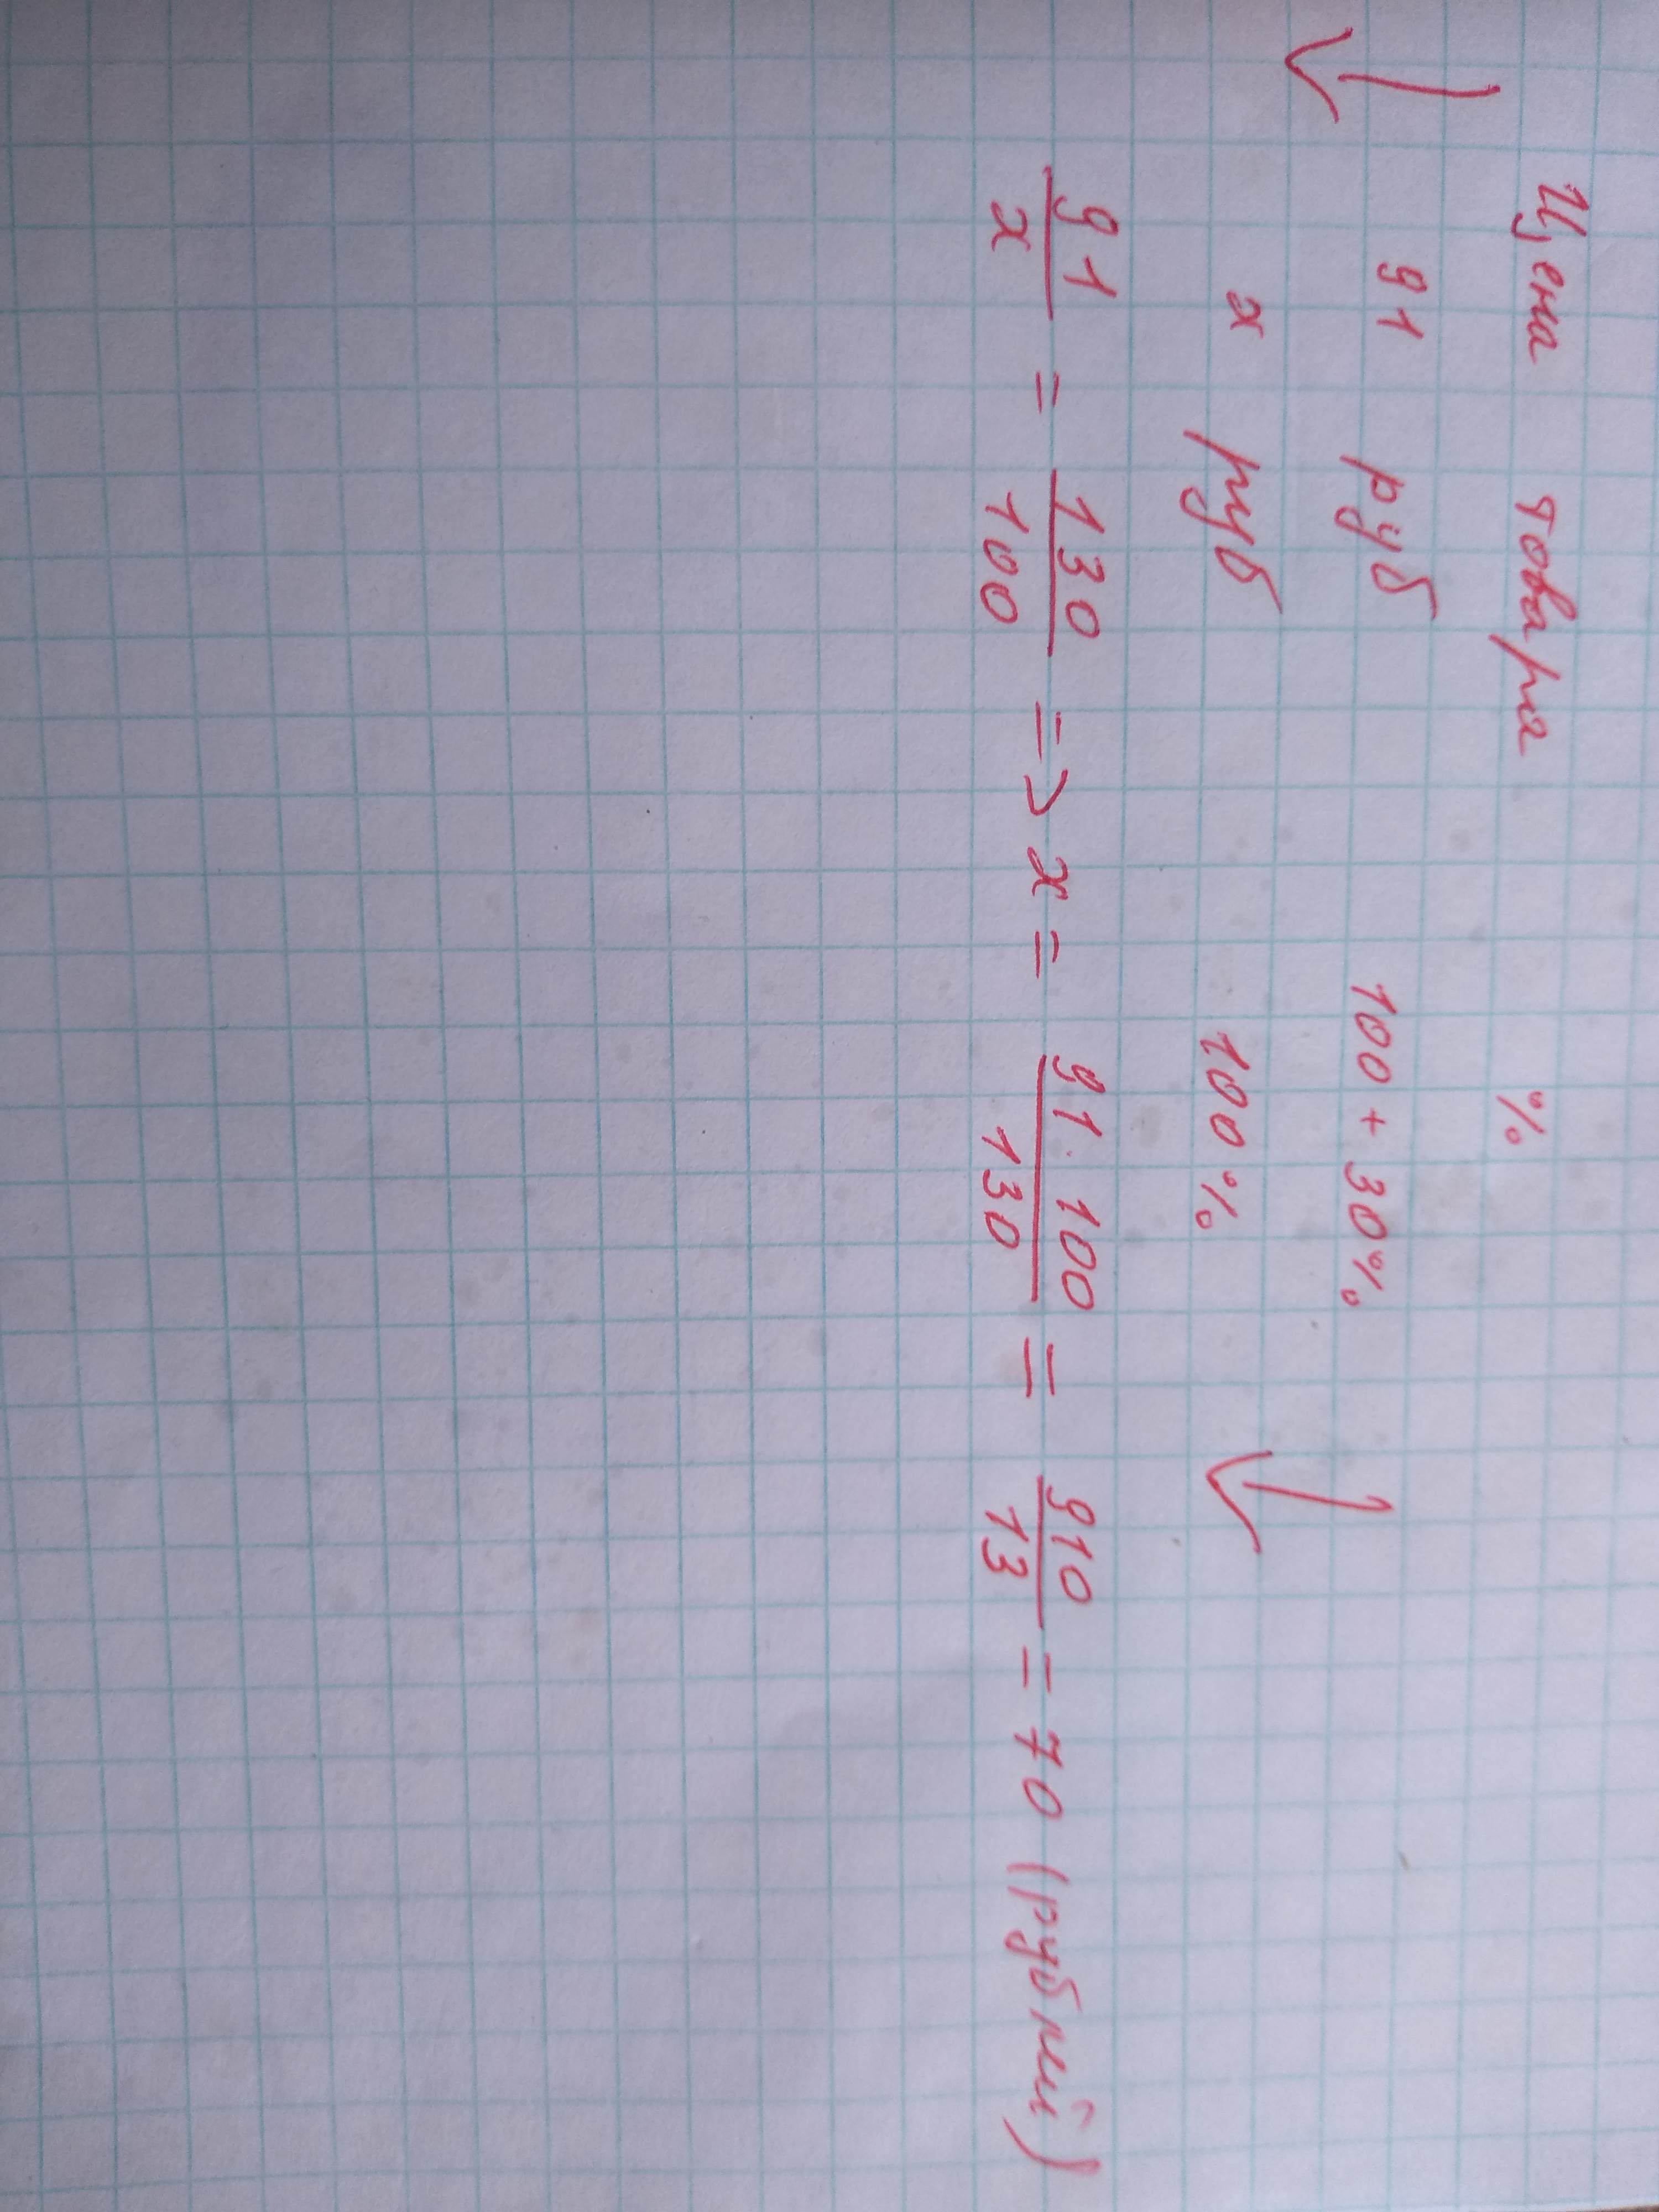 Цена товара %
↓ 91 руб 100 + 30% ↓
x руб 100%
91/x = 130/100 => x = 91·100/130 = 910/13 = 70 (рублей)